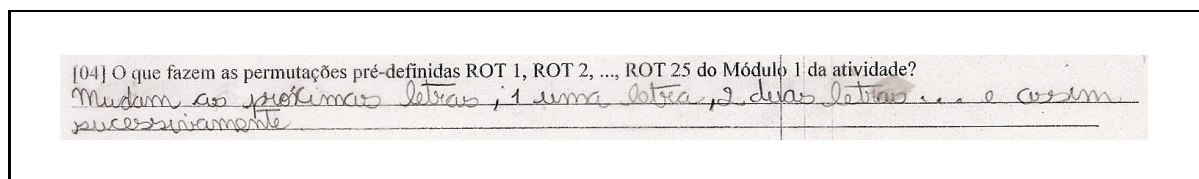 [04] O que fazem as permutações pré-definidas ROT 1, ROT 2, ..., ROT 25 do Módulo 1 da atividade?
Mudam as próximas letras, 1 uma letra, 2 duas letras ... e assim
sucessivamente